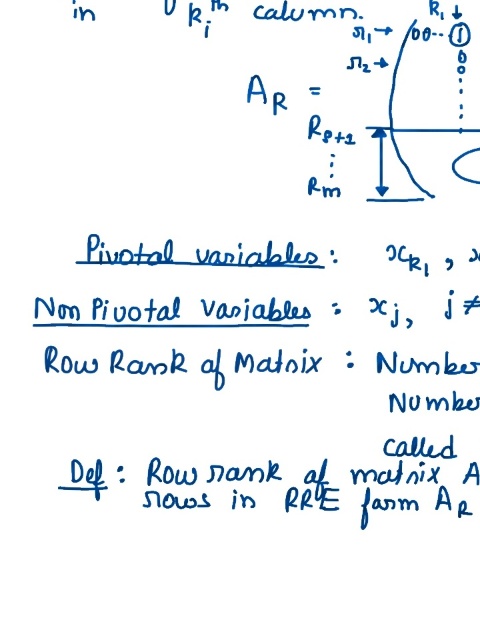 in k_i^th calumn.
k_1 ↓
r_1 → 00·· 1
r_2 → 0
0
A_R =
R_{r+1}
⋮
R_m
Pivotal variables : x_{k_1} ,
Non Pivotal Variables : x_j, j ≠
Row Rank of Matrix : Number
Number
called
Def : Row rank of matrix A
rows in RRE form A_R